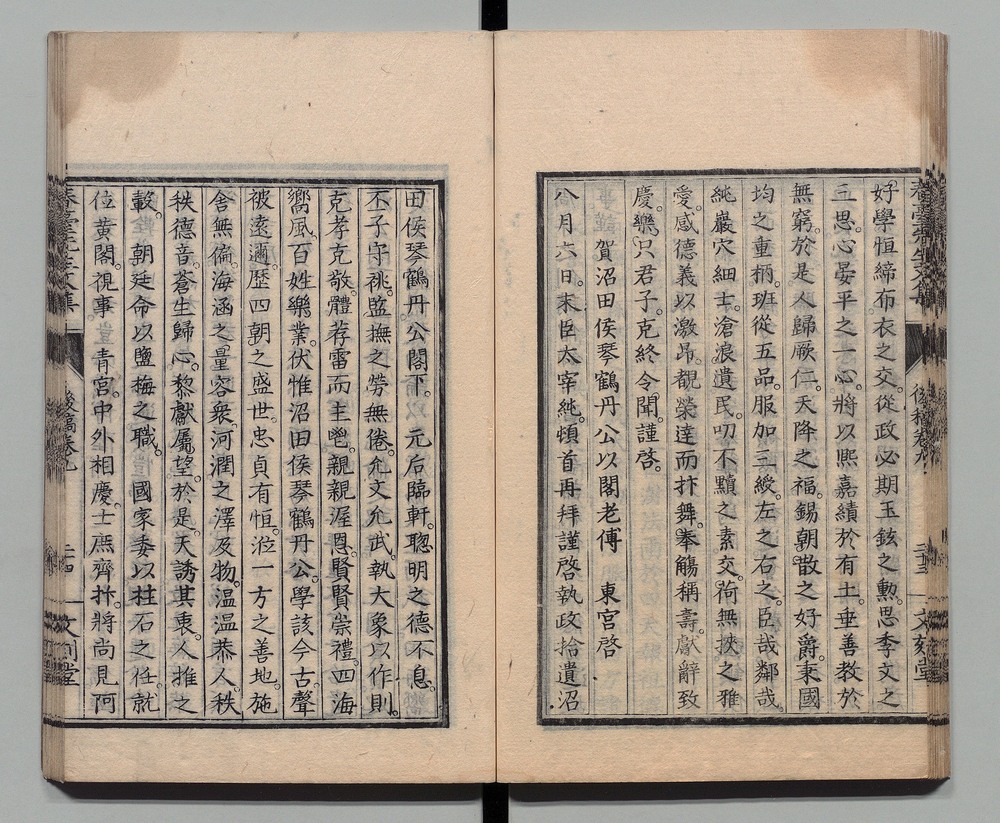 好學恒締布衣之交。從政必期玉鉉之勲。思季文之
三思。心晏平之一心。將以熙嘉績於有土。垂善教於
無窮。於是人歸厥仁。天降之福。錫朝散之好爵。秉國
均之重柄。班從五品。服加三綬。左之右之。臣哉鄰哉。
純巖穴細士。滄浪遺民。叨不顯之素交。荷無挾之雅
愛。感德義以激昂。覩榮達而抃舞。奉觴稱壽。獻辭致
慶。樂只君子。克終令聞。謹啓。
賀沼田侯琴鶴丹公以閣老傅 東宮啓
八月六日。末臣太宰純。頓首再拜謹啓執政拾遺沼
田侯琴鶴丹公閣下。元后臨軒。聰明之德不息。
丕子守祧。監撫之勞無倦。允文允武。執大象以作則。
克孝克敬。體荐雷而主鬯。親親渥恩。賢賢崇禮。四海
嚮風。百姓樂業。伏惟沼田侯琴鶴丹公。學該今古。聲
被遠邇。歷四朝之盛世。忠貞有恒。涖一方之善地。施
舍無偏。海涵之量容衆。河潤之澤及物。温温恭人。秩
秩德音。蒼生歸心。黎獻屬望。於是天誘其衷。人推之
轂。朝廷命以鹽梅之職。國家委以柱石之任。就
位黄閣。視事 青宮。中外相慶。士庶齊抃。將尚見阿
後稿卷九
二十三
文刻堂
後稿卷九
二十四